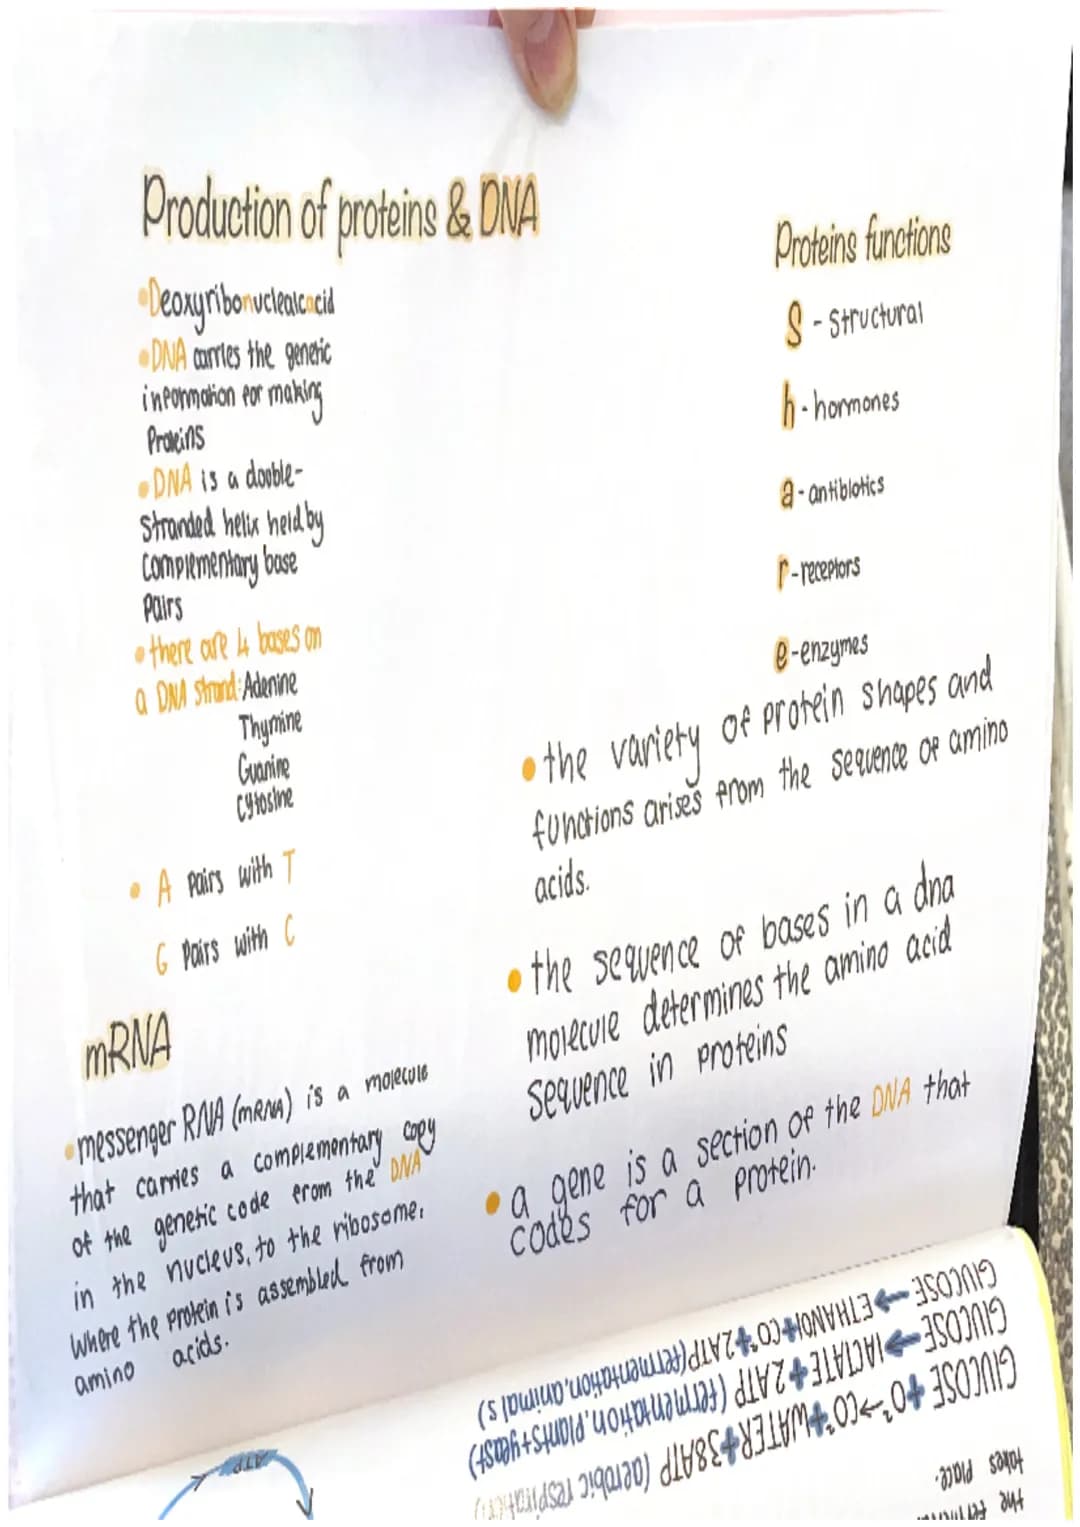 Production of proteins & DNA
•Deoxyribonuclealcacid
•DNA carries the genetic
information for making
Proteins
•DNA is a dooble-
stranded helix held by
complementary base
Pairs
•there are 4 bases on
a DNA strand: Adenine
Thymine
Guanine
Cytosine
• A Pairs with T
G Pairs with C
mRNA
•messenger RNA (mRNA) is a molecule
that carries a complementary copy
of the genetic code from the DNA
in the nucleus, to the ribosome.
Where the protein is assembled from
amino acids.
Proteins functions
S - structural
h - hormones
a - antibiotics
r - receptors
e - enzymes
• the variety of protein shapes and
functions arises from the sequence of amino
acids.
• the sequence of bases in a dna
molecule determines the amino acid
sequence in proteins
• a gene is a section of the DNA that
codes for a protein.
the
takes place.
GLUCOSE + O² → CO² + WATER + 38ATP (aerobic respiration)
GLUCOSE → LACTATE + 2ATP (fermentation, plants+yeast)
GLUCOSE → ETHANOL + CO² + 2ATP (fermentation, animals)
ATP